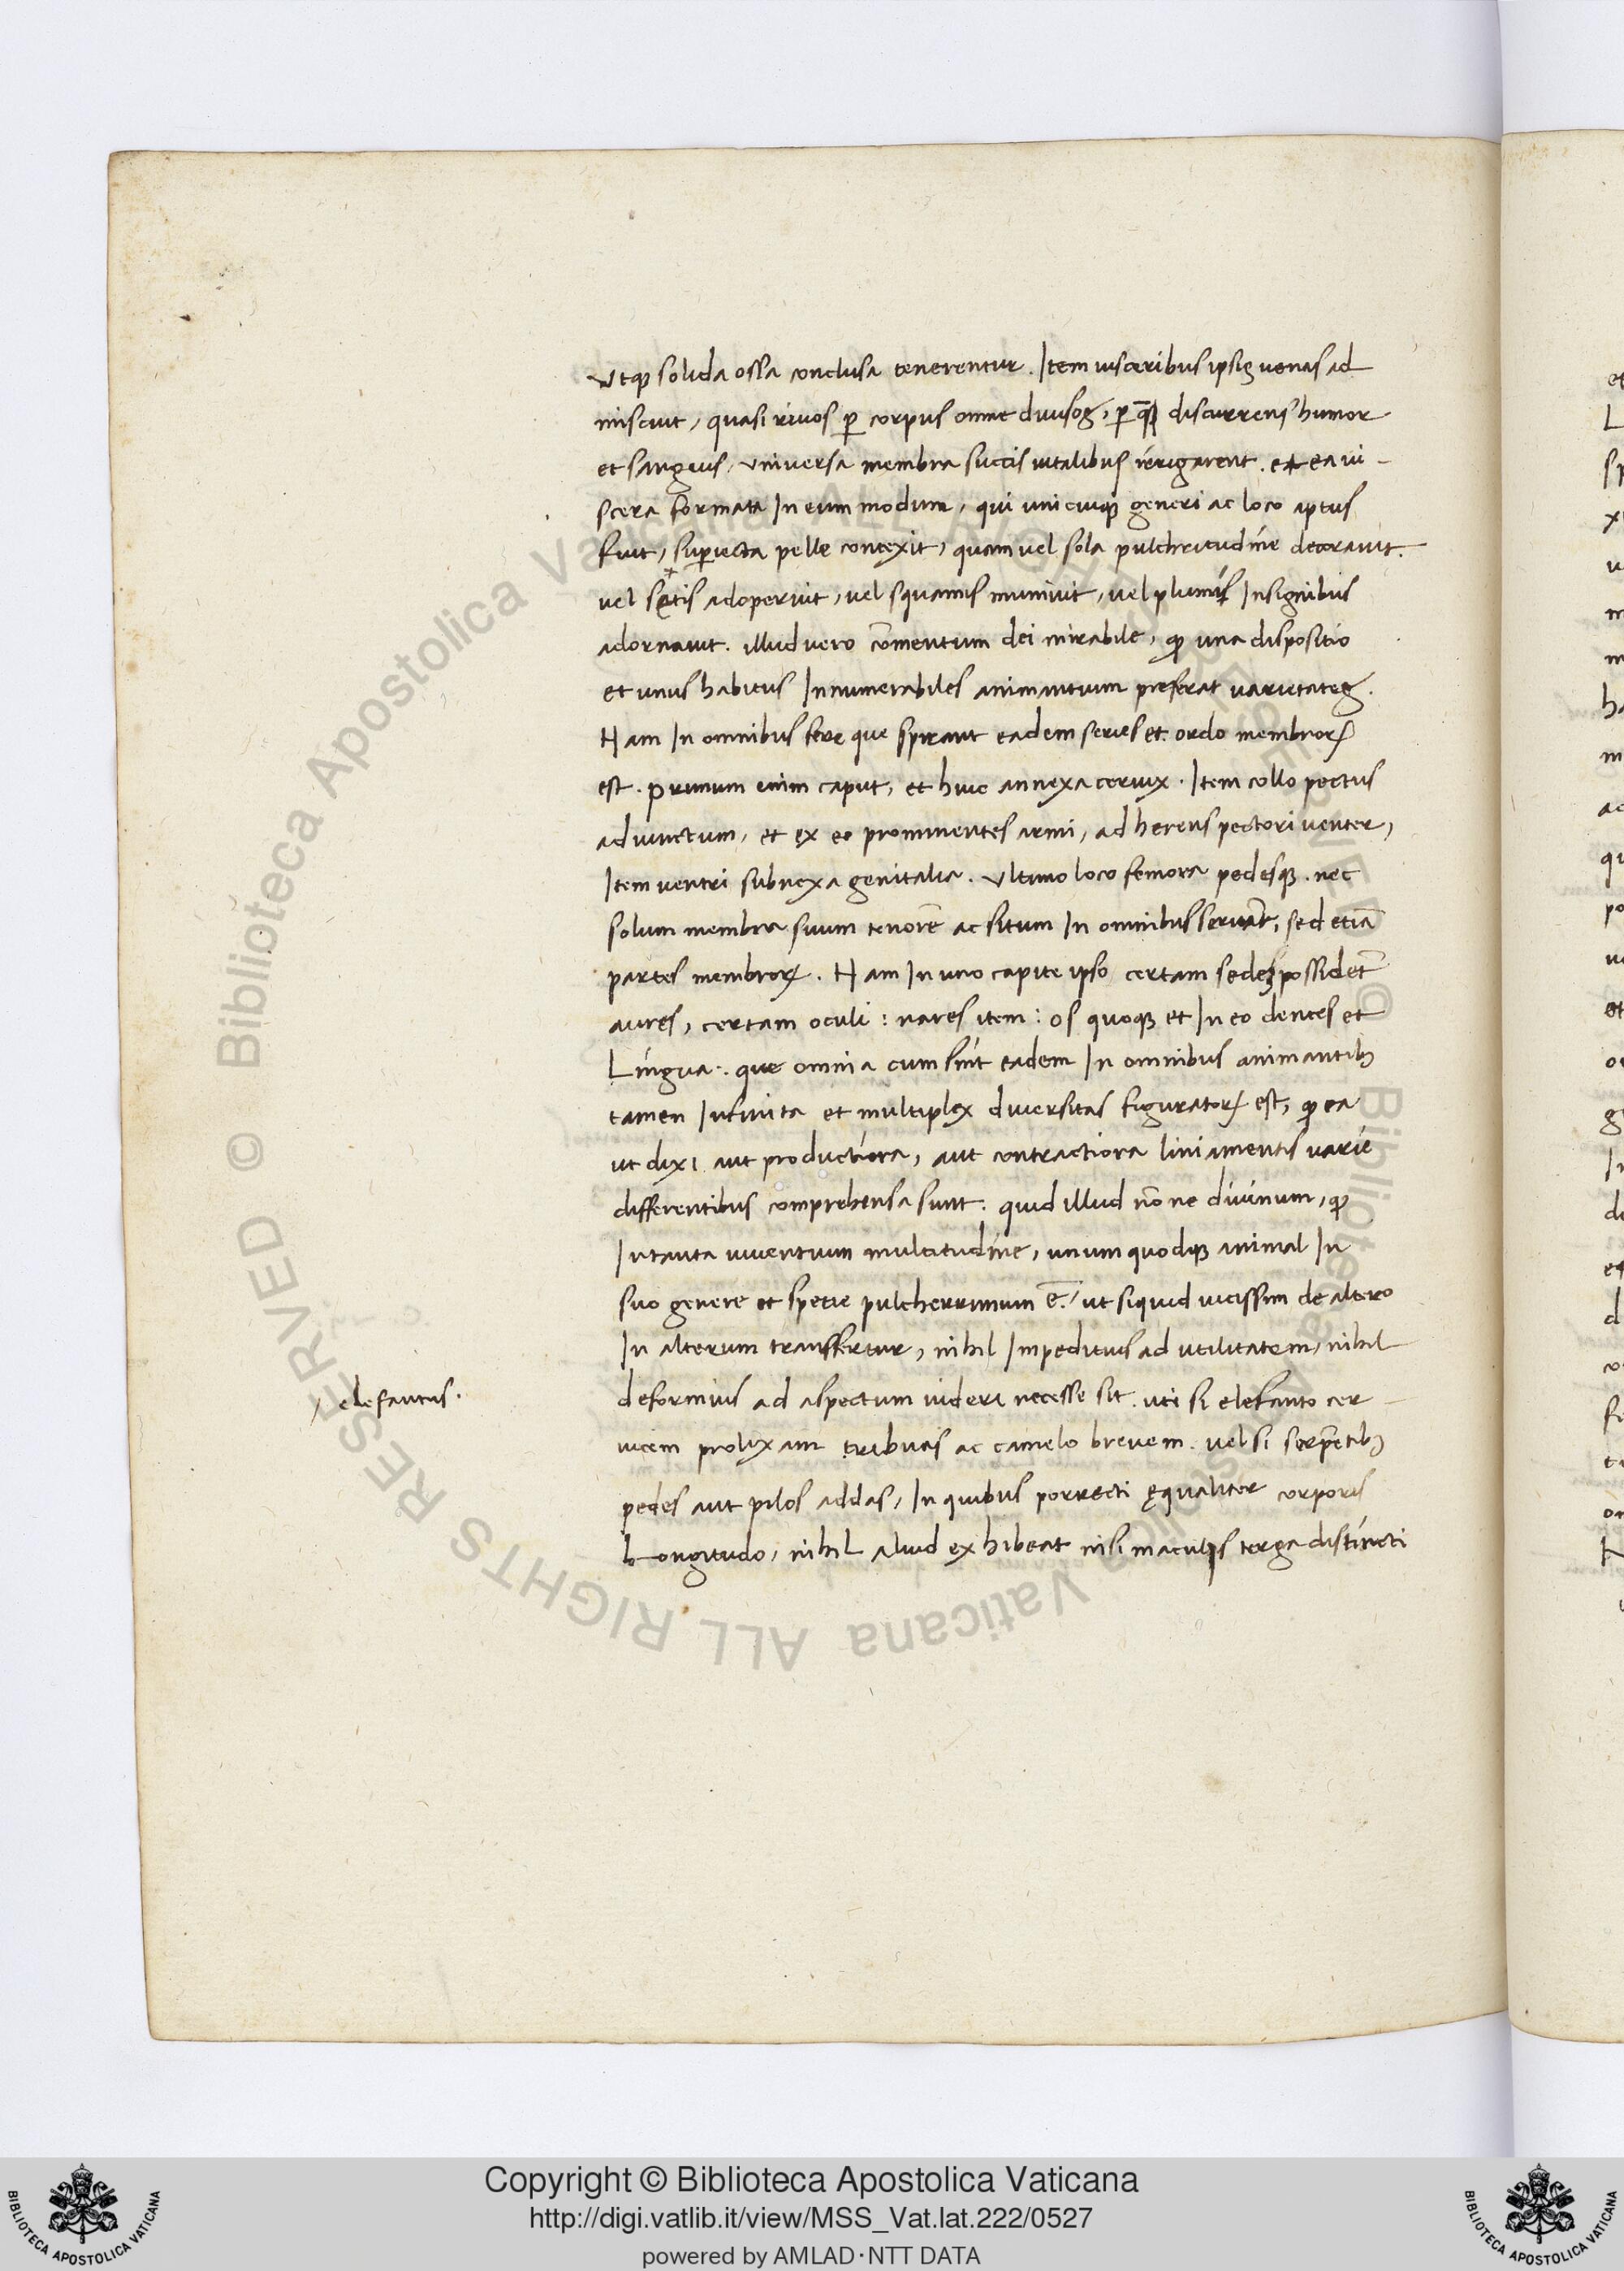 Utq̃ solida ossa conclusa tenerentur. Item visceribus ipsis venas ad
miscuit, quasi rivos ꝑ corpus omne divisos, ꝑ q̃s discurrens humor
et sanguis, universa membra succis vitalibus irrigarent. et ea vi-
scera formata In eum modum, qui unicuiqꝫ generi ac loco aptus
fuit, suꝑiecta pelle contexit, quam vel sola pulchritudine decoravit.
vel setis adoperiut, vel squamis munivit, vel plumis Insignibus
adornavit. illud vero cõmentum dei mirabile, ꝙ una dispositio
et unus habitus Innumerabiles animantium preferat varietates.
Nam In omnibus fere que spirant eadem series et ordo membroꝝ
est. primum enim caput, et huic annexa cervix. Item collo pectus
adiunctum, et ex eo prominentes armi, adherens pectori venter,
Item ventri subnexa genitalia. Ultimo loco femora pedesqꝫ. nec
solum membra suum tenorẽ ac situm In omnibus servant, sed etiã
partes membroꝝ. Nam In uno capite ipso certam sedem possidẽt
aures, certam oculi: nares item: os quoqꝫ et In eo dentes et
Lingua. que omnia cum sint eadem In omnibus animantibꝫ
tamen Infinita et multiplex diversitas figuratoꝝ est, ꝙ ea
ut dixi aut productiora, aut contractiora liniamentis varie
differentibus comprehensa sunt. quid illud nõ ne divinum, ꝙ
In tanta viventium multitudine, unum quodqꝫ animal In
suo genere et spetie pulcherrimum ẽ. ut siquid vicissim de altero
In alterum transfertur, nihil Impeditius ad utilitatem, nihil
deformius ad aspectum videri necesse sit. uti si elefanto cer-
vicem prolixam tribuas ac camelo brevem. vel si serpẽtibꝫ
pedes aut pilos addas, In quibus porrecti ęqualiter corporis
Longitudo, nihil aliud exhibeat nisi maculis terga distincti
elefantus.
Copyright © Biblioteca Apostolica Vaticana
http://digi.vatlib.it/view/MSS_Vat.lat.222/0527
powered by AMLAD·NTT DATA
BIBLIOTECA APOSTOLICA VATICANA
BIBLIOTECA APOSTOLICA VATICANA
© Biblioteca Apostolica Vaticana ALL RIGHTS RESERVED
© Biblioteca Apostolica Vaticana ALL RIGHTS RESERVED